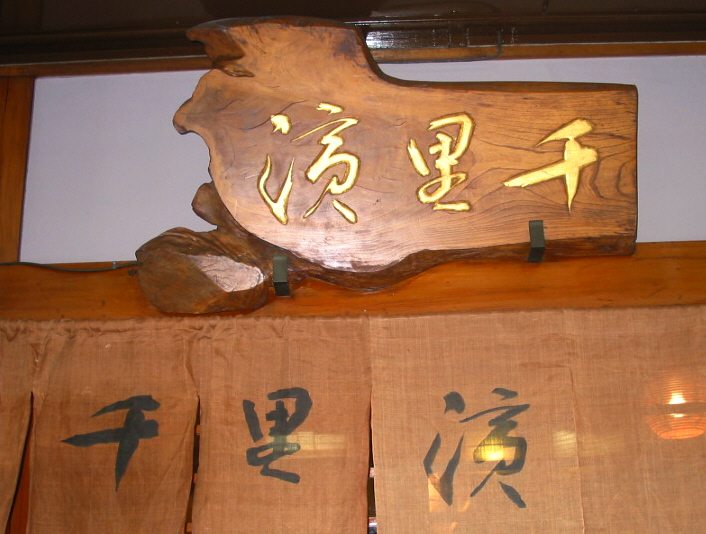 千里濱
千里濱